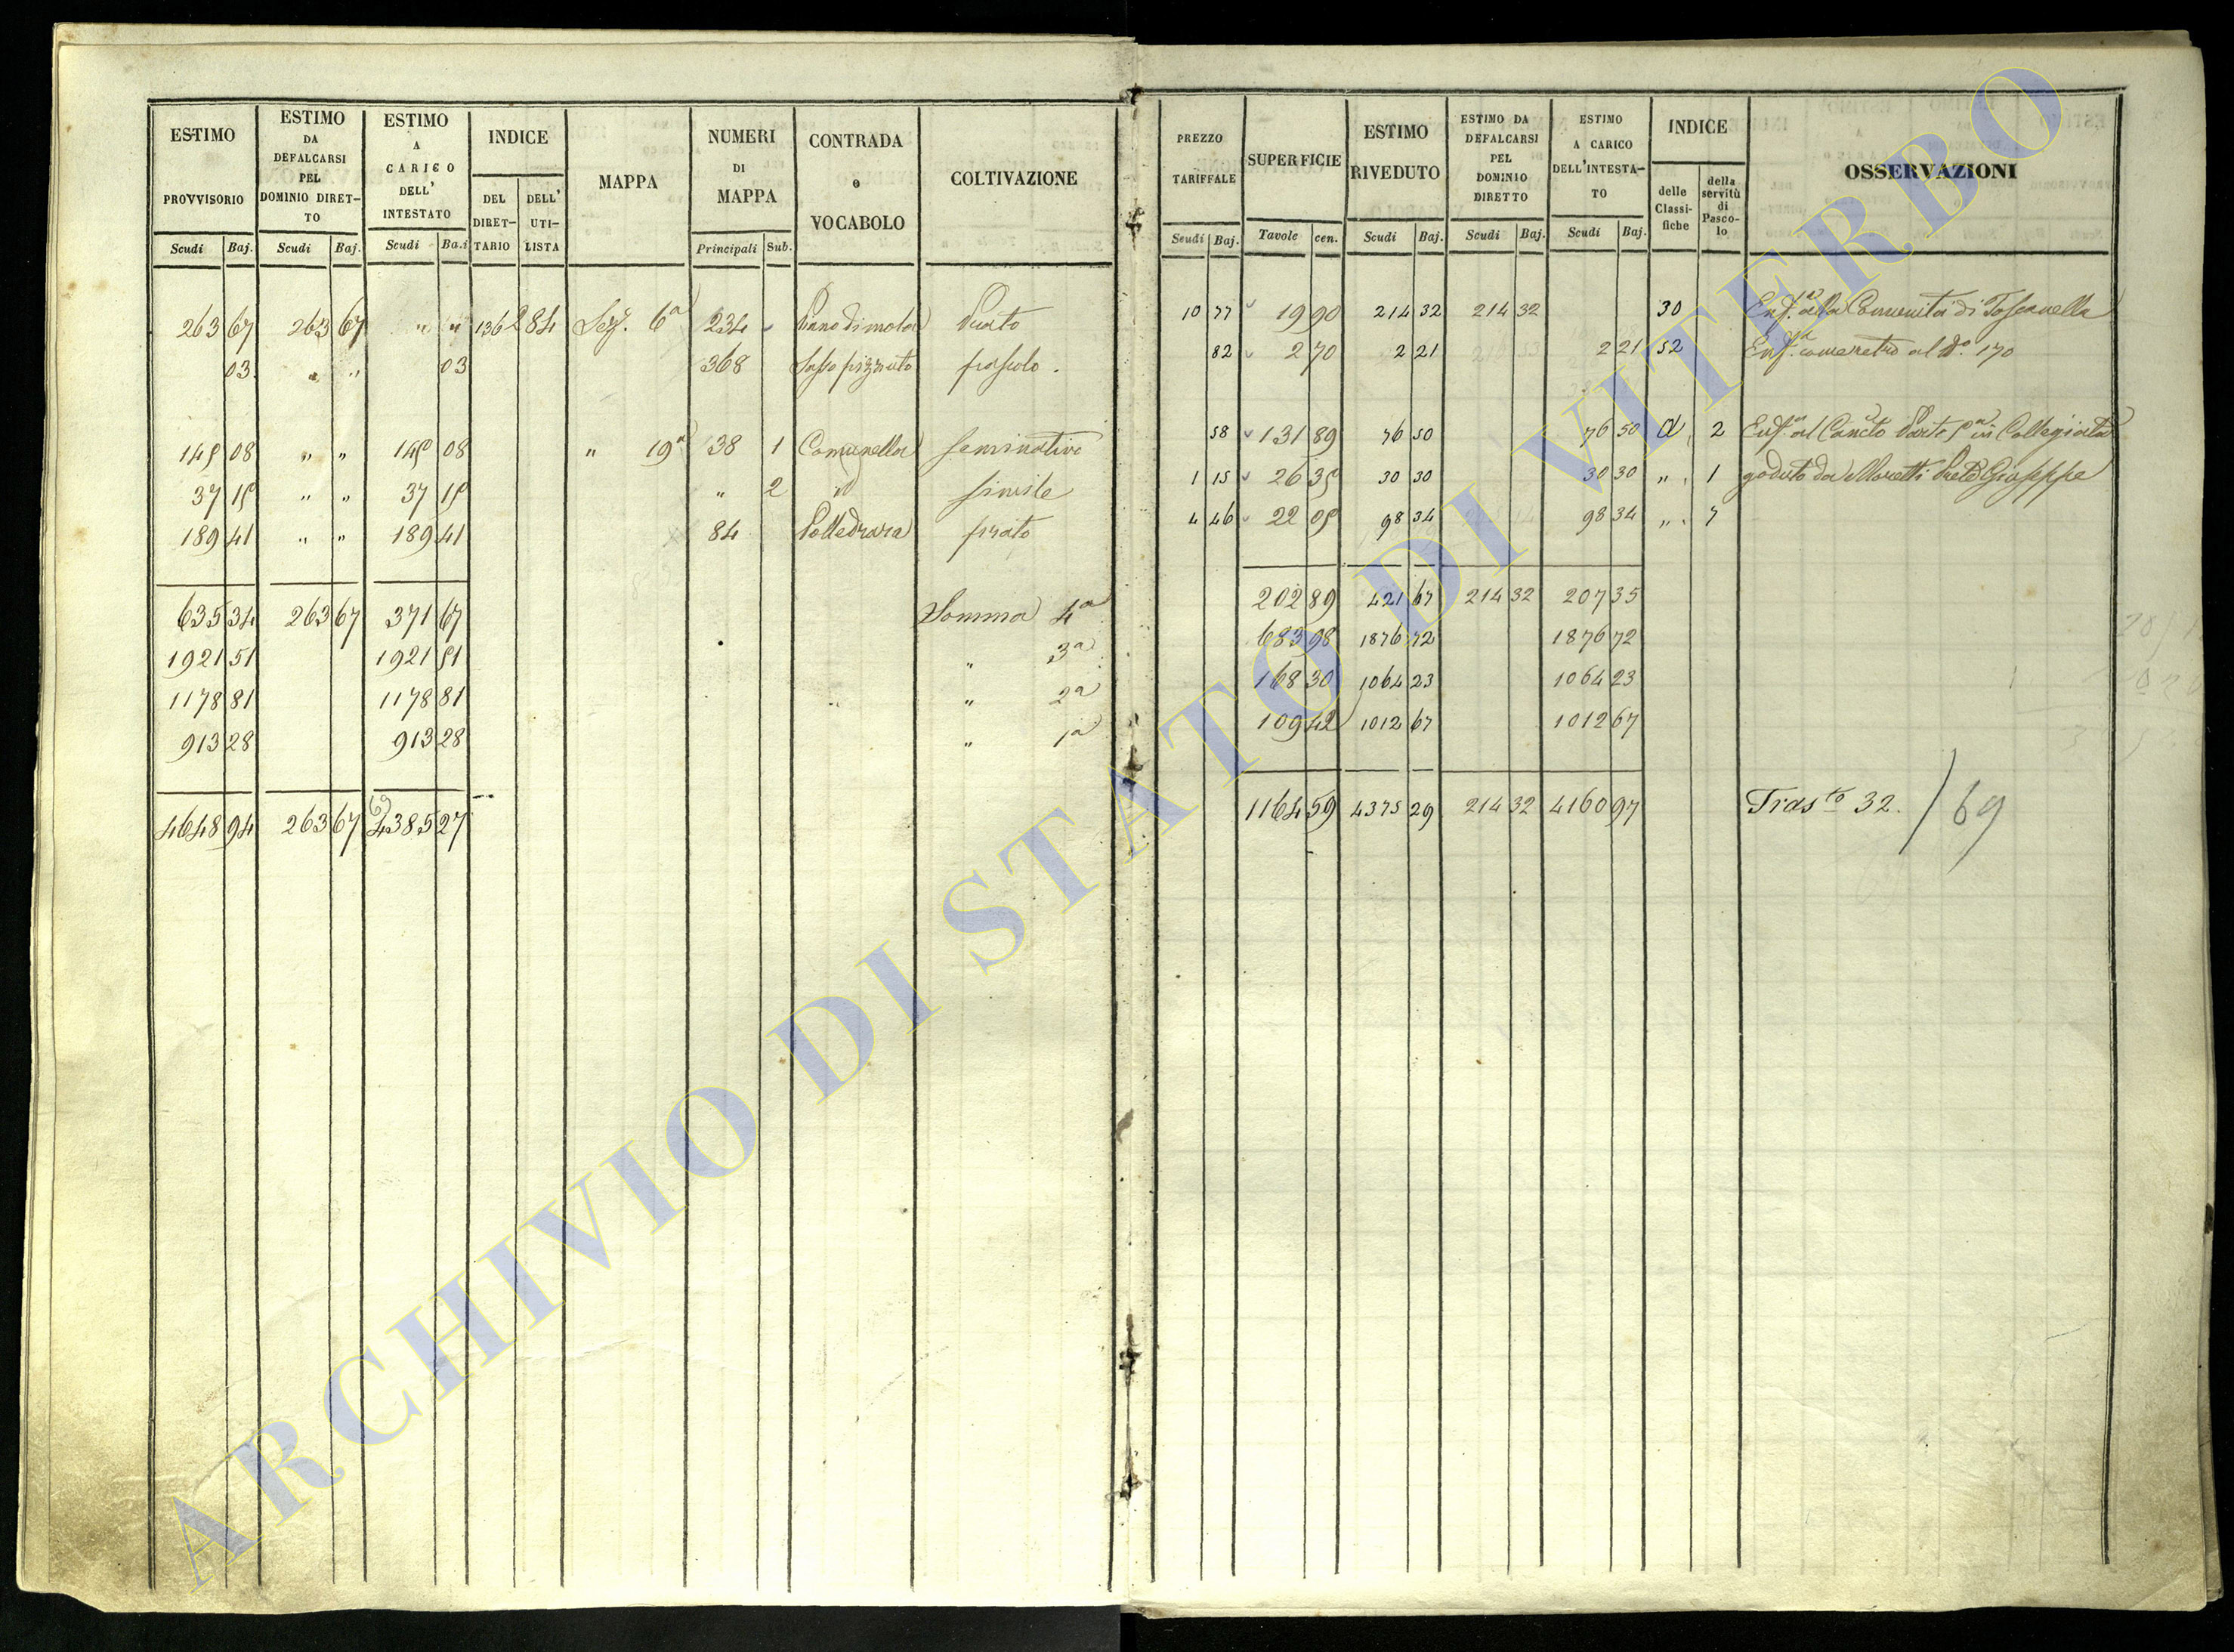 ESTIMO PROVVISORIO Scudi Baj.
ESTIMO DA DEFALCARSI PEL DOMINIO DIRET-TO Scudi Baj.
ESTIMO A CARICO DELL' INTESTATO Scudi Ba.i
INDICE DEL DIRET-TARIO DELL' UTI-LISTA
MAPPA
NUMERI DI MAPPA Principali Sub.
CONTRADA o VOCABOLO
COLTIVAZIONE
263 67 263 67 " " 136 284 Sez.e 6a 234 Piano di mola Prato
03 " " 03 368 Sasso pizzuto pascolo.
145 08 " " 145 08 " 19a 38 1 Comunella seminativo
37 15 " " 37 15 " 2 id simile
189 41 " " 189 41 84 Polledrara prato
635 34 263 67 371 67 Somma 4a
1921 51 1921 51 " 3a
1178 81 1178 81 " 2a
913 28 913 28 " 1a
4648 94 263 67 4385 27
PREZZO TARIFFALE Scudi Baj.
SUPERFICIE Tavole cen.
ESTIMO RIVEDUTO Scudi Baj.
ESTIMO DA DEFALCARSI PEL DOMINIO DIRETTO Scudi Baj.
ESTIMO A CARICO DELL'INTESTA-TO Scudi Baj.
INDICE delle Classi-fiche della servitù di Pasco-lo
OSSERVAZIONI
10 77 19 90 214 32 214 32 30 Enf.a alla Comunità di Toscanella
82 2 70 2 21 2 21 52 Enf.a come retro al N.o 170
58 131 89 76 50 76 50 a 2 Enf. al in Collegiata
1 15 26 35 30 30 30 30 " 1 goduto da Moretti Giuseppe
4 46 22 05 98 34 98 34 " 7
202 89 421 67 214 32 207 35
683 98 1876 72 1876 72
168 30 1064 23 1064 23
109 42 1012 67 1012 67
1164 59 4375 29 214 32 4160 97 Tras.to 32. / 69
ARCHIVIO DI STATO DI VITERBO